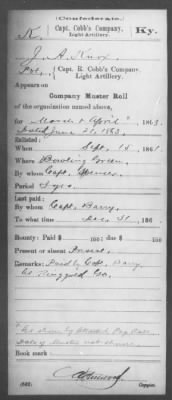 (Confederate.)
K. Capt. Cobb's Co., Light Artillery. Ky.
J. A. Knox
Capt. R. Cobb's Company Light Artillery.
Appears on
Company Muster Roll
of the organization named above,
for March & April, 1863.
Dated June 21, 1863.
Enlisted:
When Sept. 15, 1861
Where Bowling Green,
By whom Capt.
Period 3 yrs.
Last paid:
By whom Capt. Barry,
To what time Dec. 31, 186
Bounty: Paid $ 100; due $ 100
Present or absent Present
Remarks: Paid by Capt. Barry
at Ringgold Ga.
Book mark:
(642) Copyist.